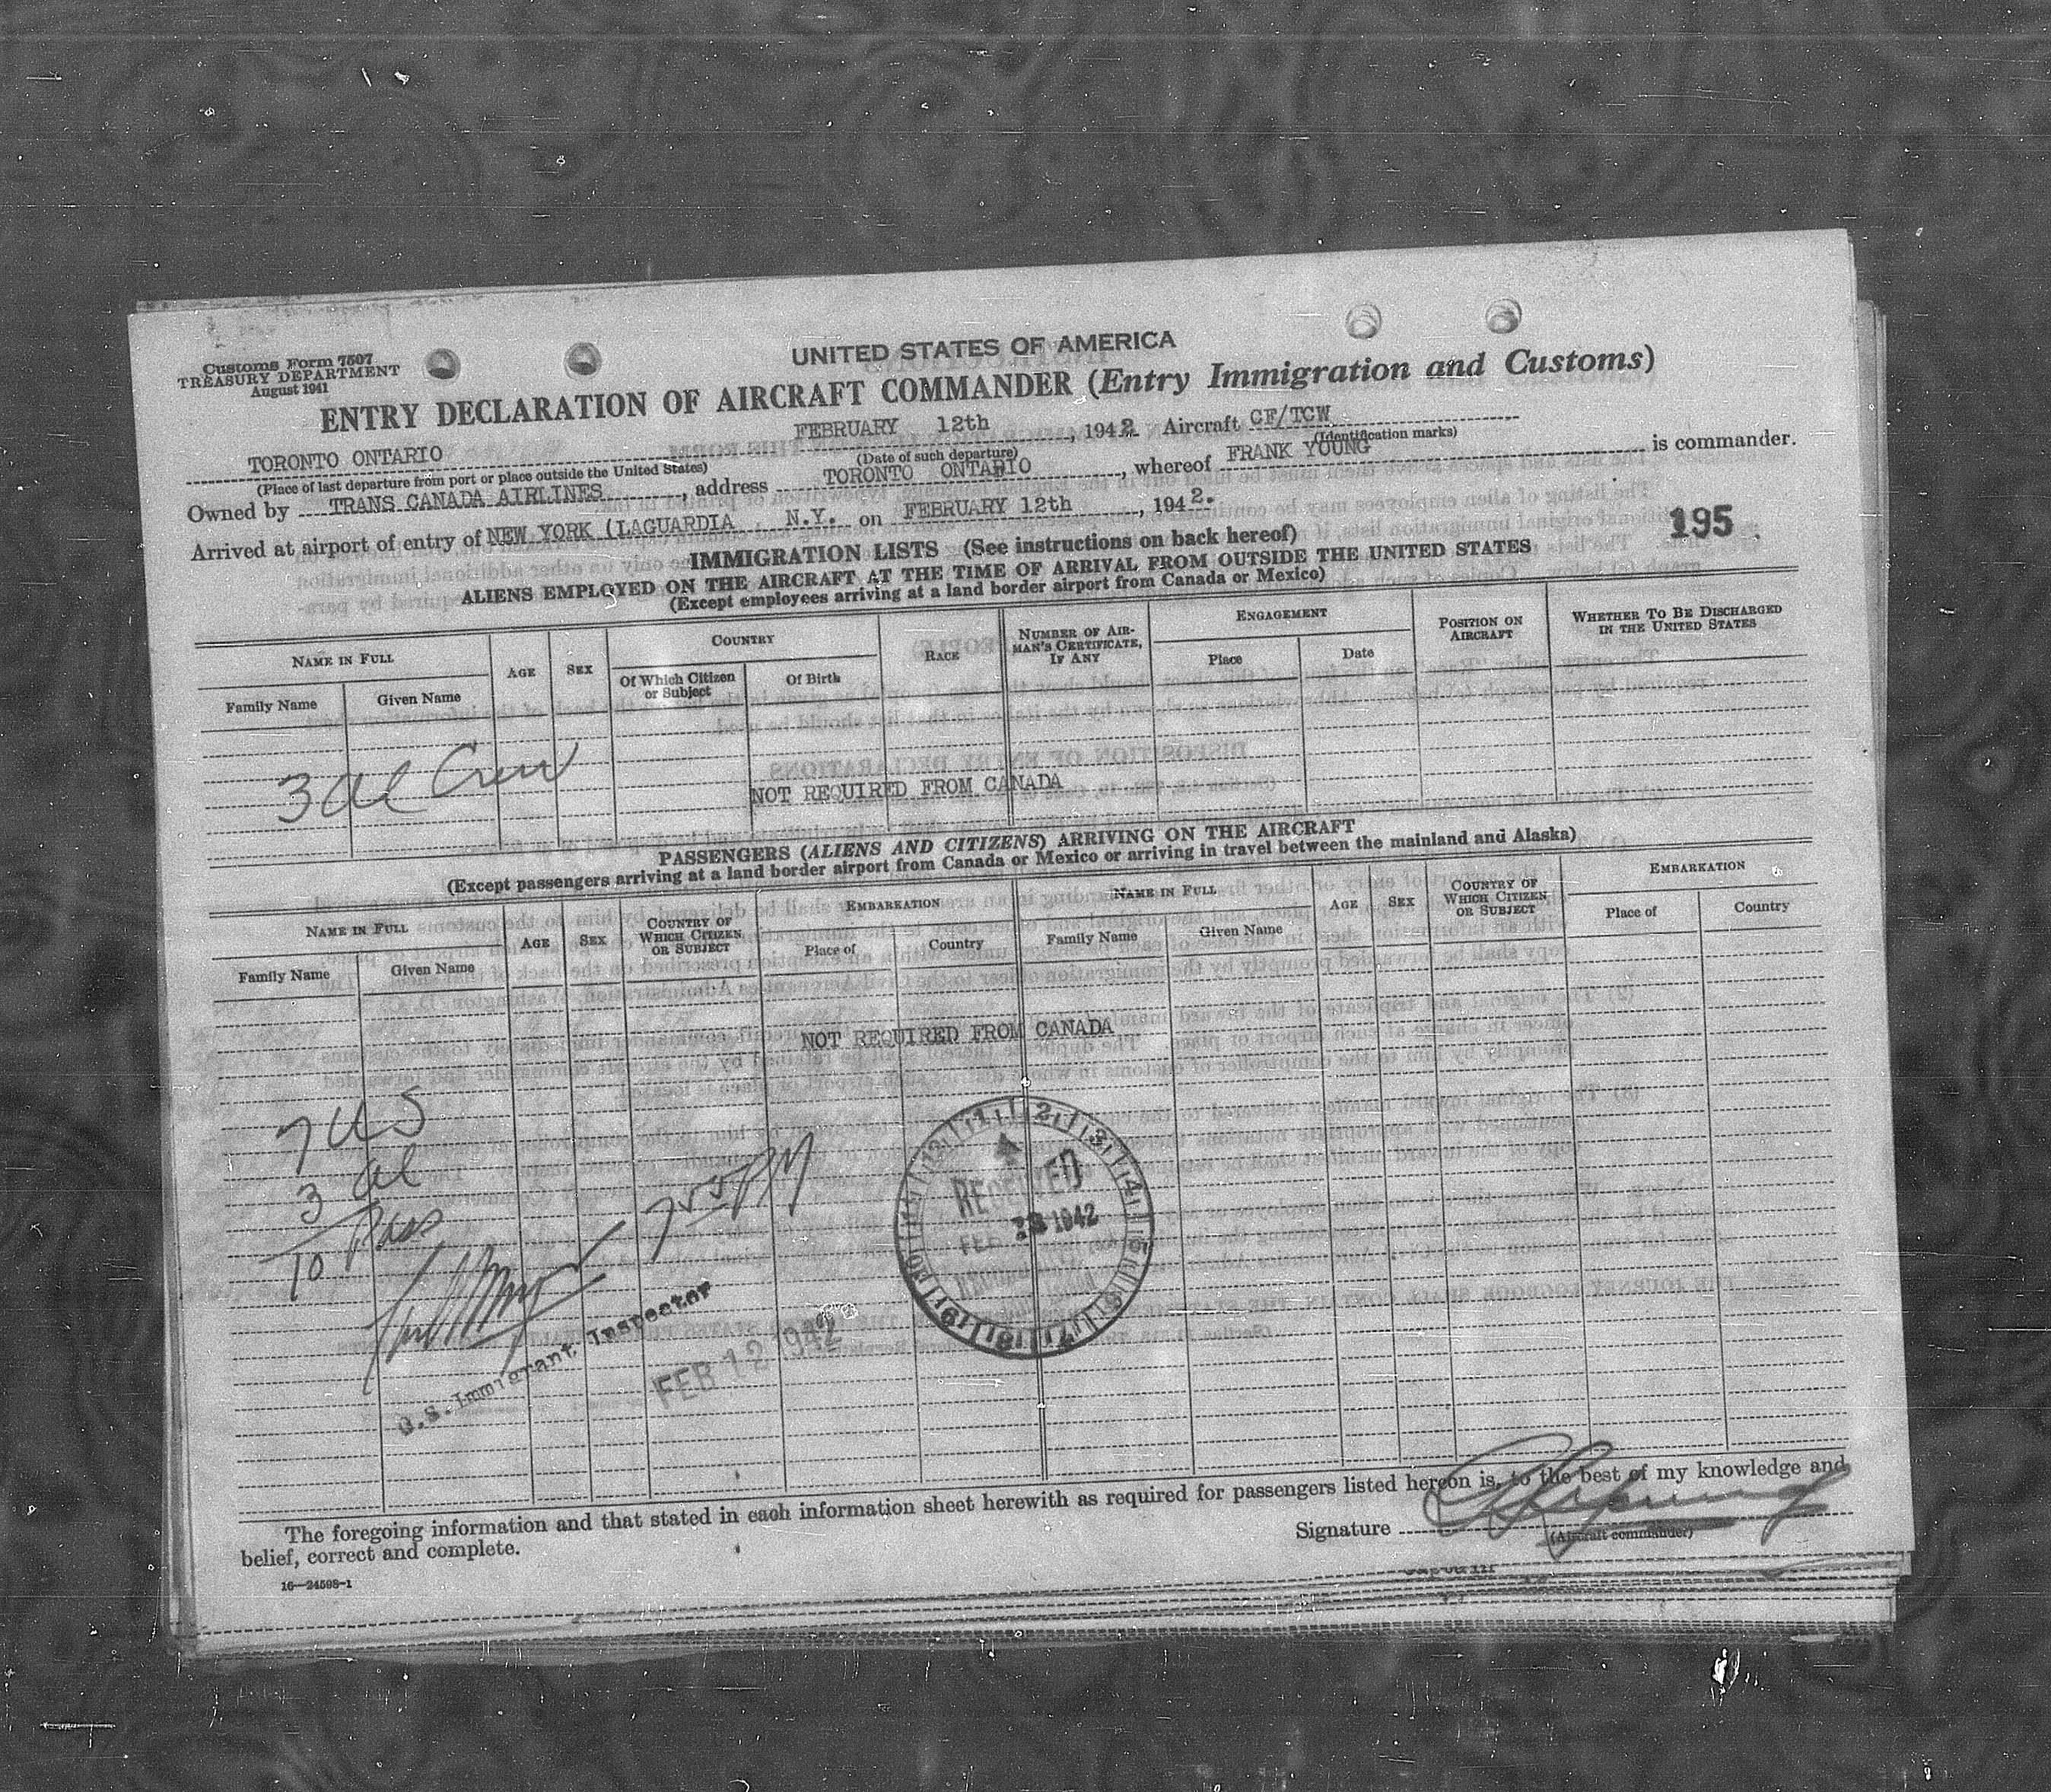 Customs Form 7507
TREASURY DEPARTMENT
August 1941
UNITED STATES OF AMERICA
ENTRY DECLARATION OF AIRCRAFT COMMANDER (Entry Immigration and Customs)
TORONTO ONTARIO FEBRUARY 12th, 1942 Aircraft CF/TCW
(Place of last departure from port or place outside the United States) (Date of such departure) (Identification marks)
Owned by TRANS CANADA AIRLINES, address TORONTO ONTARIO, whereof FRANK YOUNG is commander.
Arrived at airport of entry of NEW YORK (LAGUARDIA N.Y. on FEBRUARY 12th, 1942.
195
IMMIGRATION LISTS (See instructions on back hereof)
ALIENS EMPLOYED ON THE AIRCRAFT AT THE TIME OF ARRIVAL FROM OUTSIDE THE UNITED STATES
(Except employees arriving at a land border airport from Canada or Mexico)
NAME IN FULL
Family Name
Given Name
AGE
SEX
COUNTRY
Of Which Citizen or Subject
Of Birth
RACE
NUMBER OF AIRMAN'S CERTIFICATE, IF ANY
ENGAGEMENT
Place
Date
POSITION ON AIRCRAFT
WHETHER TO BE DISCHARGED IN THE UNITED STATES
3 al Crew
NOT REQUIRED FROM CANADA
PASSENGERS (ALIENS AND CITIZENS) ARRIVING ON THE AIRCRAFT
(Except passengers arriving at a land border airport from Canada or Mexico or arriving in travel between the mainland and Alaska)
NAME IN FULL
Family Name
Given Name
AGE
SEX
COUNTRY OF WHICH CITIZEN OR SUBJECT
EMBARKATION
Place of
Country
NAME IN FULL
Family Name
Given Name
AGE
SEX
COUNTRY OF WHICH CITIZEN OR SUBJECT
EMBARKATION
Place of
Country
NOT REQUIRED FROM CANADA
7 US
3 al
10 Pass
755 PM
U.S. Immigrant Inspector
FEB 12 1942
RECEIVED
FEB 1942
The foregoing information and that stated in each information sheet herewith as required for passengers listed hereon is, to the best of my knowledge and
belief, correct and complete.
Signature
(Aircraft commander)
16—24598-1